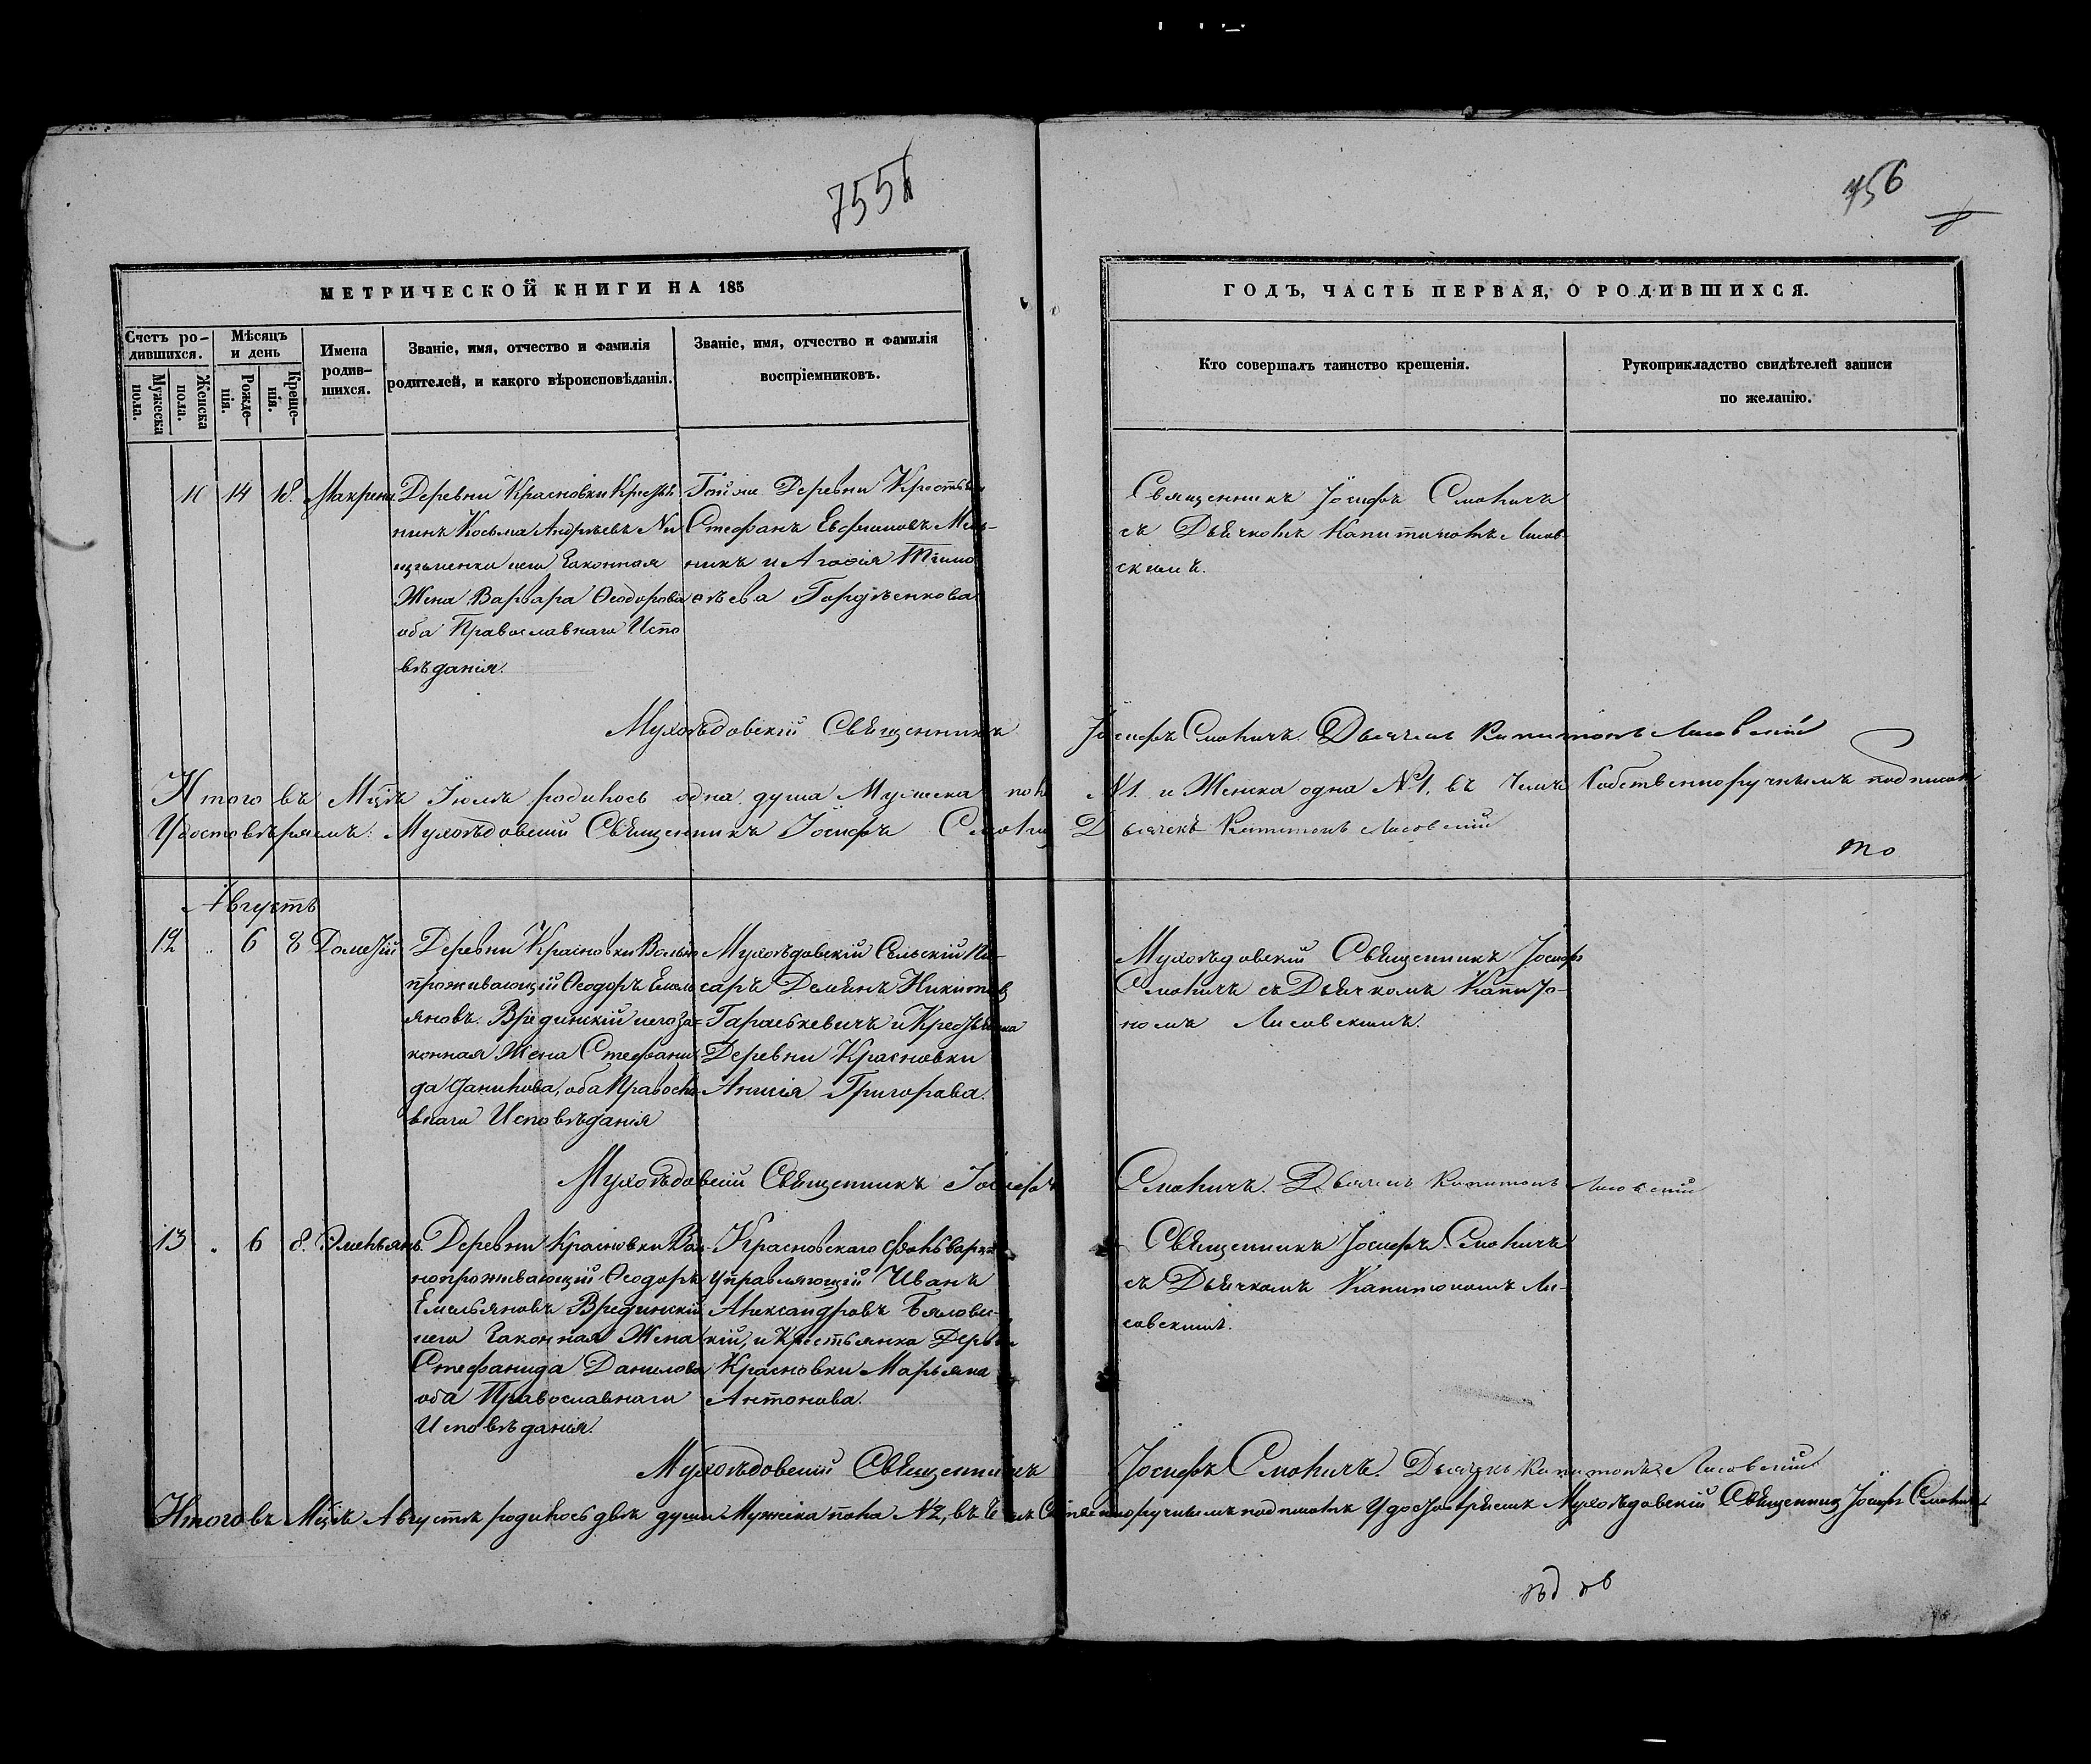 755
756
МЕТРИЧЕСКОЙ КНИГИ НА 185
ГОДЪ, ЧАСТЬ ПЕРВАЯ, О РОДИВШИХСЯ.
Счетъ ро-
дившихся.
Мужеска
пола.
Женска
пола.
Мѣсяцъ
и день
Рожде-
нія.
Креще-
нія.
Имена
родив-
шихся.
Званіе, имя, отчество и фамилія
родителей, и какого вѣроисповѣданія.
Званіе, имя, отчество и фамилія
воспріемниковъ.
Кто совершалъ таинство крещенія.
Рукоприкладство свидѣтелей записи
по желанію.
14 18. Макрина
Деревни Красновки
нинъ Косьма Андреевъ
его Законная
Жена Варвара Ѳеодорова
оба Православнаго Испо
вѣданія.
Тойже Деревни
Стефанъ Евфимовъ Мель-
никъ и Агафія Тимо
ѳѣева Гордѣенкова
Священникъ Іосифъ Смоличъ
съ Дьячкомъ Капитономъ Лисов-
скимъ.
Мухоѣдовскій Священникъ Іосифъ Смоличъ. Дьячекъ Капитонъ Лисовскій
Итого въ Мцѣ Іюлѣ родилось одна душа Мужеска пола №1. и Женска одна №1, въ чемъ Собственноручнымъ подписомъ
Удостовѣряемъ: Мухоѣдовскій Священникъ Іосифъ Смоличъ Дьячекъ Капитонъ Лисовскій
то
Августъ
12 .. 6 8 Дометій
Деревни Красновки Вольно
проживающій Ѳеодоръ Емель
яновъ Врединскій и его За=
конная Жена Стефани
да Данилова, оба Правосла
внаго Исповѣданія
Мухоѣдовскій Сельскій Пи-
саръ Демьянъ Никитовъ
Гараськевичъ и Крестьянка
Деревни Красновки
Анисія Григорова.
Мухоѣдовскій Священникъ Іосифъ
Смоличъ съ Дьячкомъ Капито-
номъ Лисовскимъ.
Мухоѣдовскій Священникъ Іосифъ Смоличъ. Дьячекъ Капитонъ Лисовскій
13 . 6 8. Эмельянъ.
Деревни Красновки Вол-
нопроживающій Ѳеодоръ
Емельяновъ Врединскій
и его Законная Жена
Стефанида Данилова
оба Православнаго
Исповѣданія.
Красновскаго Фольварка
Управляющій Иванъ
Александровъ Бялобы-
кій, и Крестьянка Деревни
Красновки Марьяна
Антонова.
Священникъ Іосифъ Смоличъ
съ Дьячкомъ Капитономъ Ли-
совскимъ.
Мухоѣдовскій Священникъ Іосифъ Смоличъ. Дьячекъ Капитонъ Лисовскій
Итого въ Мцѣ Августѣ родилось двѣ души Мужеска пола №2, въ чемъ Собственноручнымъ подписомъ Удостовѣряемъ Мухоѣдовскій Священникъ Іосифъ Смоличъ